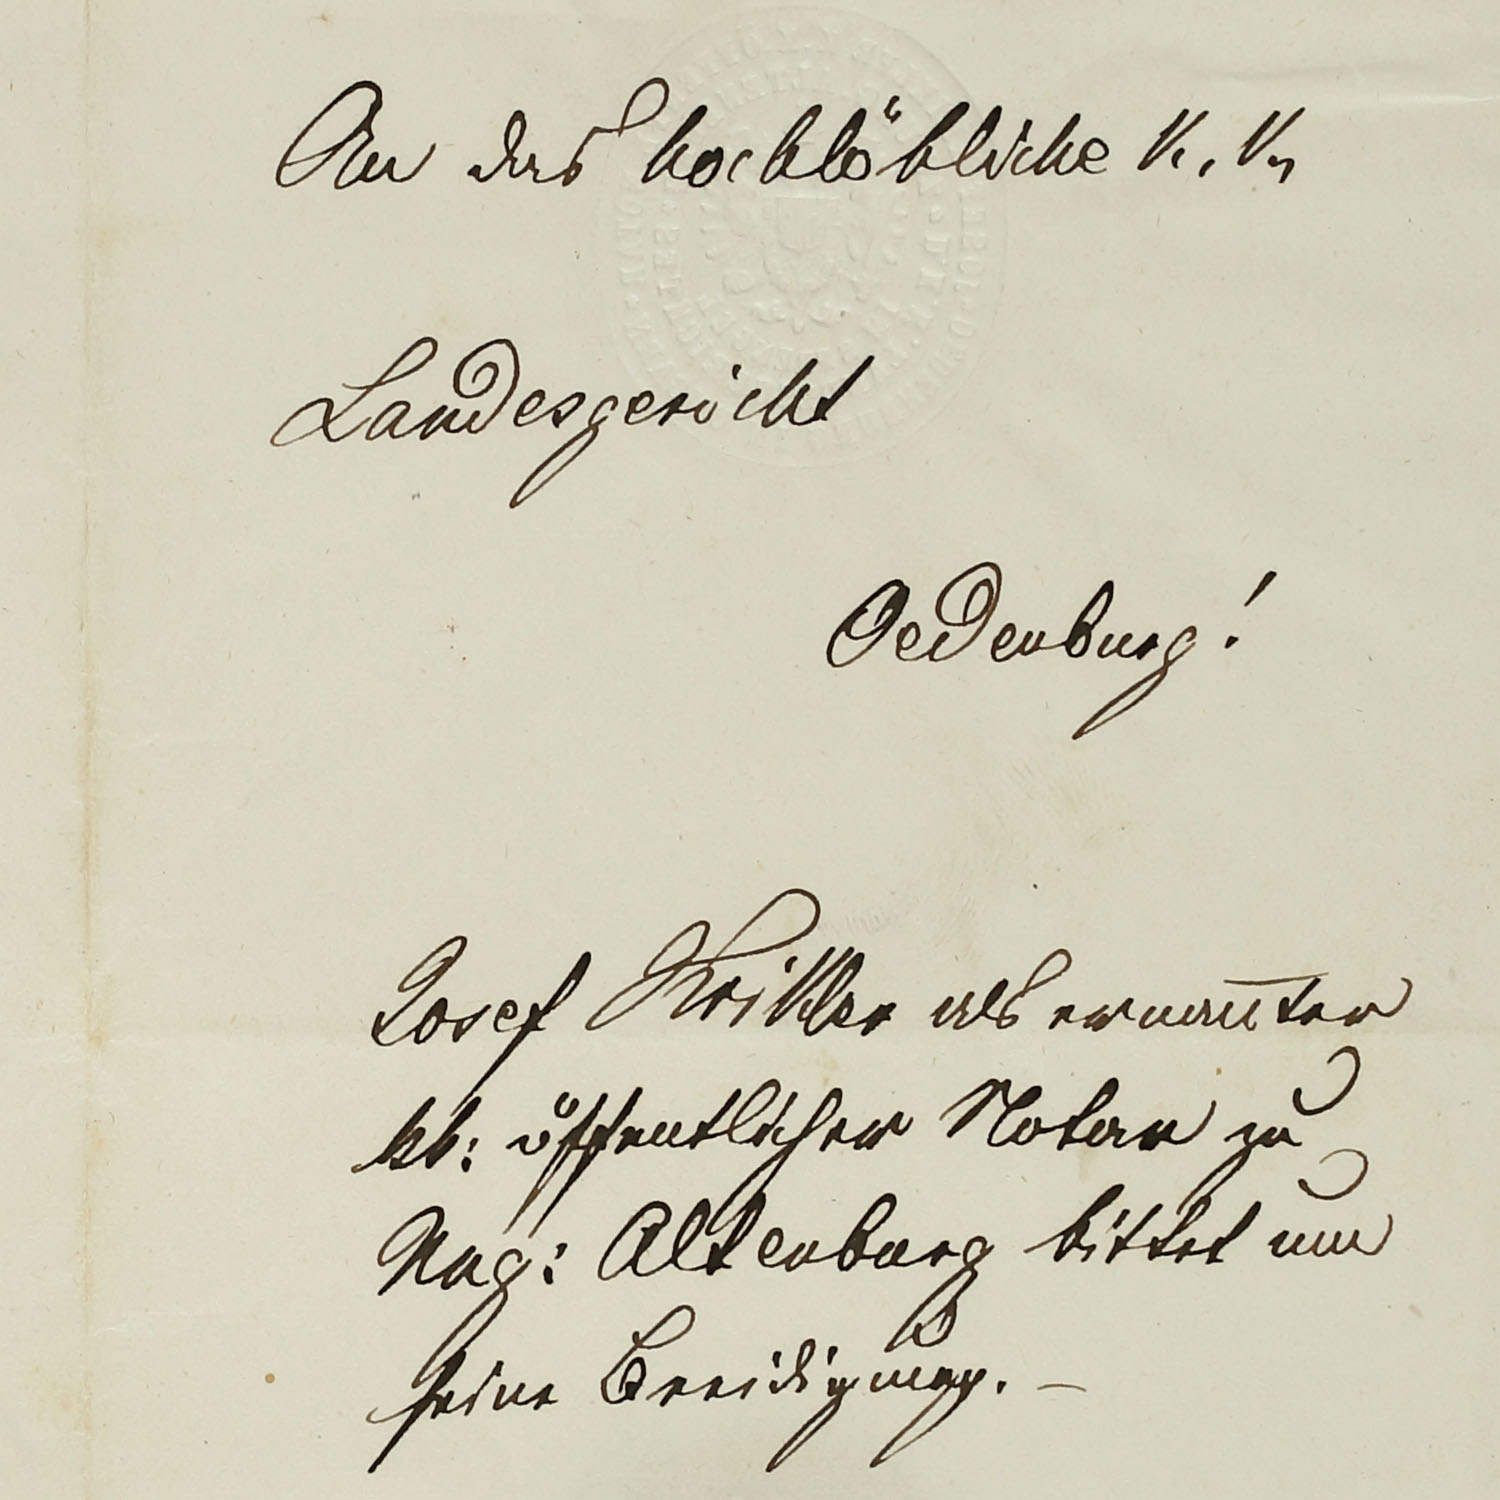 An das hochlöbliche K. K.
Landesgericht
Oedenburg!
Josef Krikler als ernan̅ter
kk: öffentlicher Notar zu
Ung: Altenburg bittet um
seine Beeidigung. –